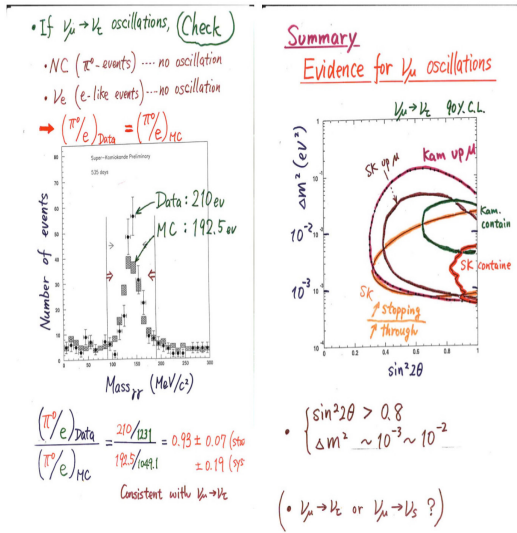 • If νμ → ντ oscillations, Check
• NC (π⁰-events) ---- no oscillation
• νe (e-like events) --- no oscillation
→ (π⁰/e)Data = (π⁰/e)MC
Super-Kamiokande Preliminary
535 days
Data : 210 ev
MC : 192.5 ev
Number of events
80
70
60
50
40
30
20
10
0
0 50 100 150 200 250 300
Massγγ (MeV/c²)
(π⁰/e)Data / (π⁰/e)MC = 210/1231 / 192.5/1049.1 = 0.93 ± 0.07 (sta
± 0.19 (sys
Consistent with νμ → ντ
Summary
Evidence for νμ oscillations
νμ → ντ 90% C.L.
Δm² (eV²)
1
10⁻¹
10⁻²
10⁻³
10⁻⁴
SK up μ
Kam up μ
Kam. contain
SK containe
SK
↑ stopping
↑ through
0 0.2 0.4 0.6 0.8 1
sin²2θ
• { sin²2θ > 0.8
Δm² ~ 10⁻³ ~ 10⁻²
(• νμ → ντ or νμ → νs ?)